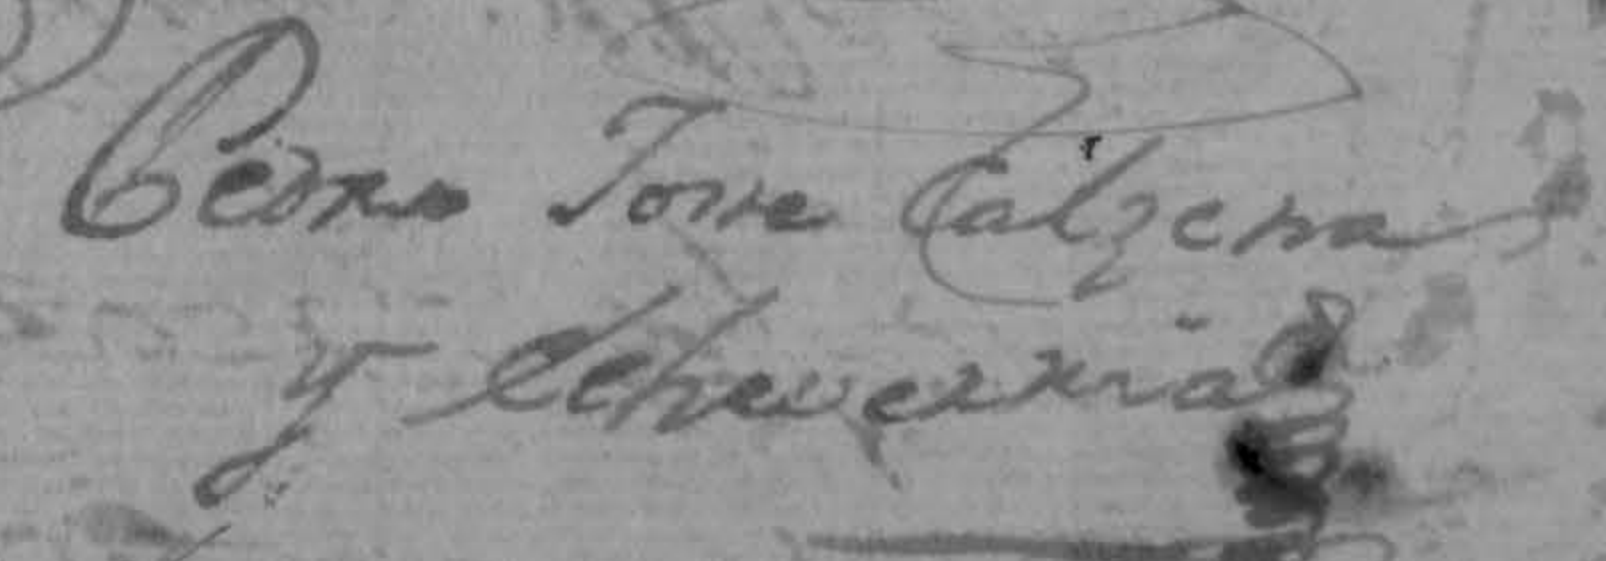 Pedro Torre Calzena
y Echeverria